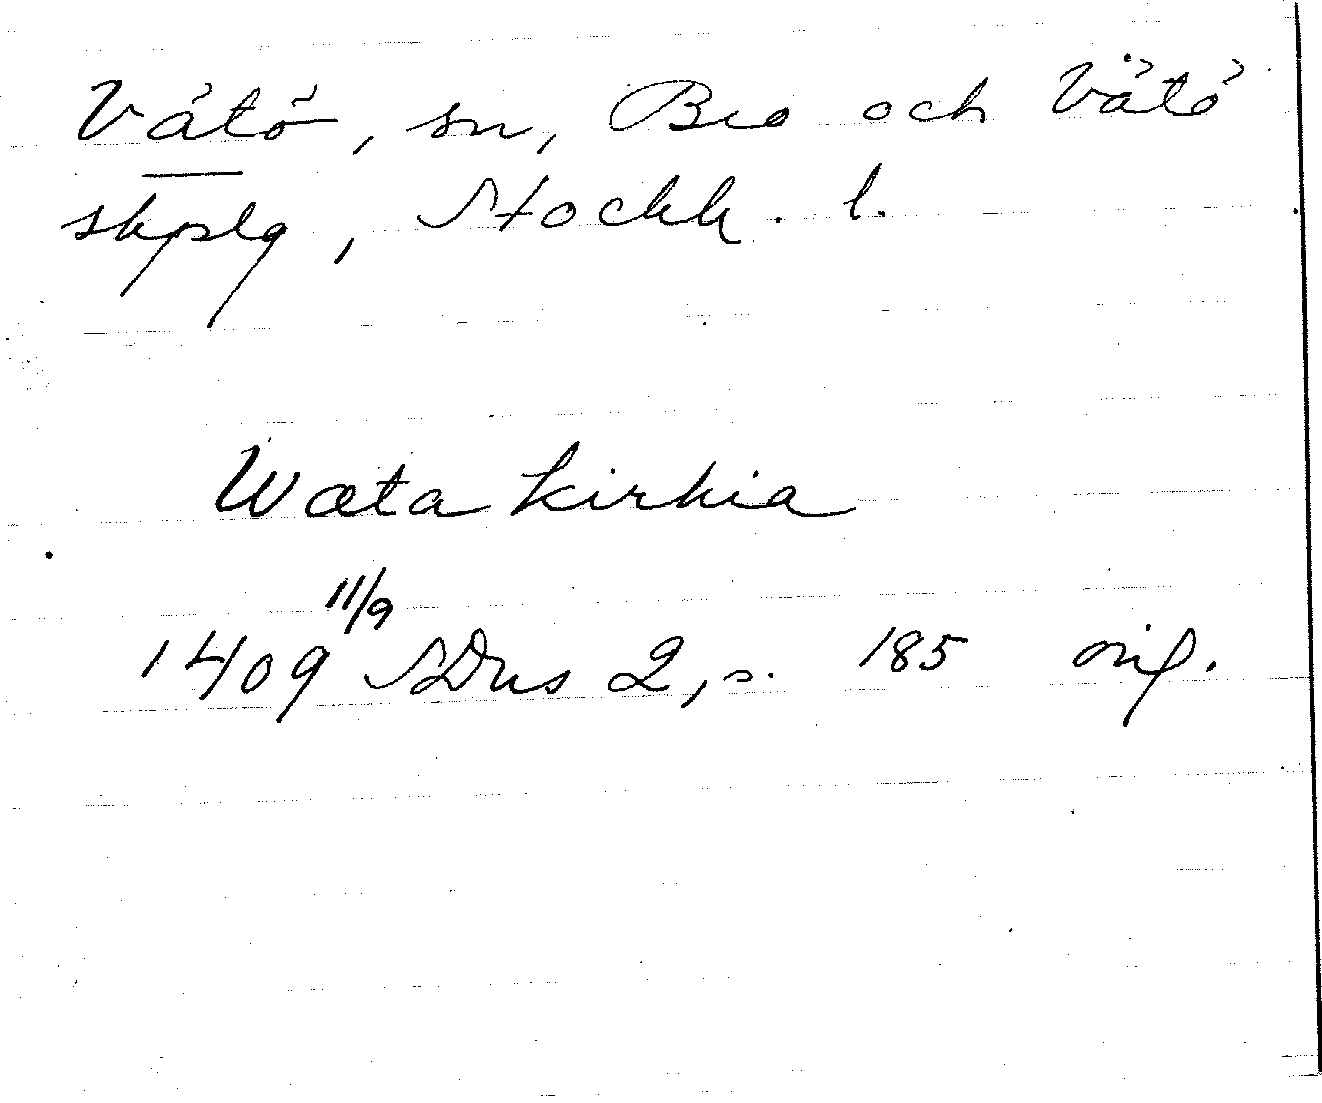 Vätö, sn, Bro och Vätö
skplg, Stockh. l.
Wæta kirkia
1409 11/9 SDns 2, s. 185 orig.